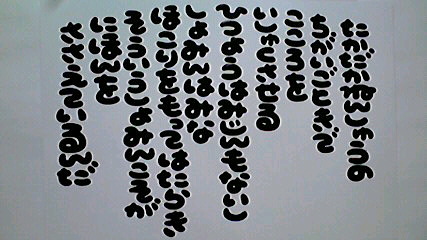 たかだかねんしゅうの
ちがいごときで
こころを
いじけさせる
ひつようはみじんもない
しょみんはみな
ほこりをもってはたらき
そういうしょみんこそが
にほんを
ささえているんだ